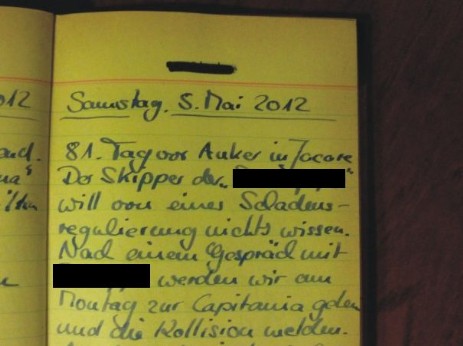 012
Samstag, 5. Mai 2012
and. 81. Tag vor Anker in Jacare
Der Skipper der "
will von einer Schadens-
regulierung nichts wissen.
Nach einem Gespräch mit
werden wir am
Montag zur Capitania gehen
und die Kollision melden.